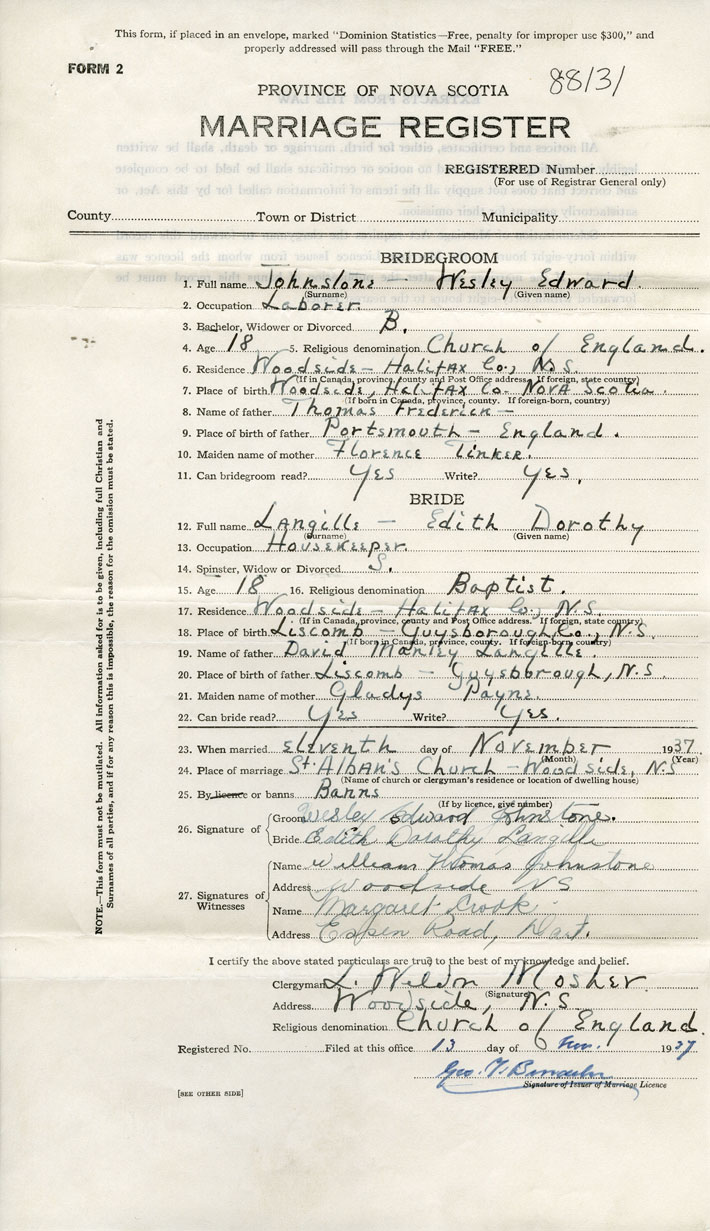 This form, if placed in an envelope, marked "Dominion Statistics—Free, penalty for improper use $300," and
properly addressed will pass through the Mail "FREE."
FORM 2
PROVINCE OF NOVA SCOTIA
88131
MARRIAGE REGISTER
REGISTERED Number
(For use of Registrar General only)
County Town or District Municipality
BRIDEGROOM
1. Full name Johnstone — Wesley Edward.
(Surname) (Given name)
2. Occupation Laborer.
3. Bachelor, Widower or Divorced B.
4. Age 18 5. Religious denomination Church of England.
6. Residence Woodside — Halifax Co., N.S.
(If in Canada, province, county and Post Office address. If foreign, state country)
7. Place of birth Woodside, Halifax Co. Nova Scotia.
(If born in Canada, province, county. If foreign-born, country)
8. Name of father Thomas Frederick —
9. Place of birth of father Portsmouth — England.
10. Maiden name of mother Florence Tinker.
11. Can bridegroom read? Yes Write? Yes.
BRIDE
12. Full name Langille — Edith Dorothy
(Surname) (Given name)
13. Occupation Housekeeper.
14. Spinster, Widow or Divorced S.
15. Age 18 16. Religious denomination Baptist.
17. Residence Woodside — Halifax Co., N.S.
(If in Canada, province, county and Post Office address. If foreign, state country)
18. Place of birth Liscomb — Guysborough Co., N.S.
(If born in Canada, province, county. If foreign-born, country)
19. Name of father David Manley Langille.
20. Place of birth of father Liscomb — Guysborough, N.S.
21. Maiden name of mother Gladys Payne.
22. Can bride read? Yes Write? Yes.
23. When married eleventh day of November 1937
(Month) (Year)
24. Place of marriage St. Alban's Church — Woodside, N.S
(Name of church or clergyman's residence or location of dwelling house)
25. By licence or banns Banns
(If by licence, give number)
26. Signature of
Groom Wesley Edward Johnstone.
Bride Edith Dorothy Langille
27. Signatures of Witnesses
Name William Thomas Johnstone
Address Woodside NS
Name Margaret Crook
Address Espen Road, Dart.
I certify the above stated particulars are true to the best of my knowledge and belief.
Clergyman L. Weldn Mosher
(Signature)
Address Woodside, N.S.
Religious denomination Church of England.
Registered No. Filed at this office 13 day of Nov. 1937
Geo. T.
Signature of Issuer of Marriage Licence
[SEE OTHER SIDE]
NOTE.—This form must not be mutilated. All information asked for is to be given, including full Christian and
Surnames of all parties, and if for any reason this is impossible, the reason for the omission must be stated.